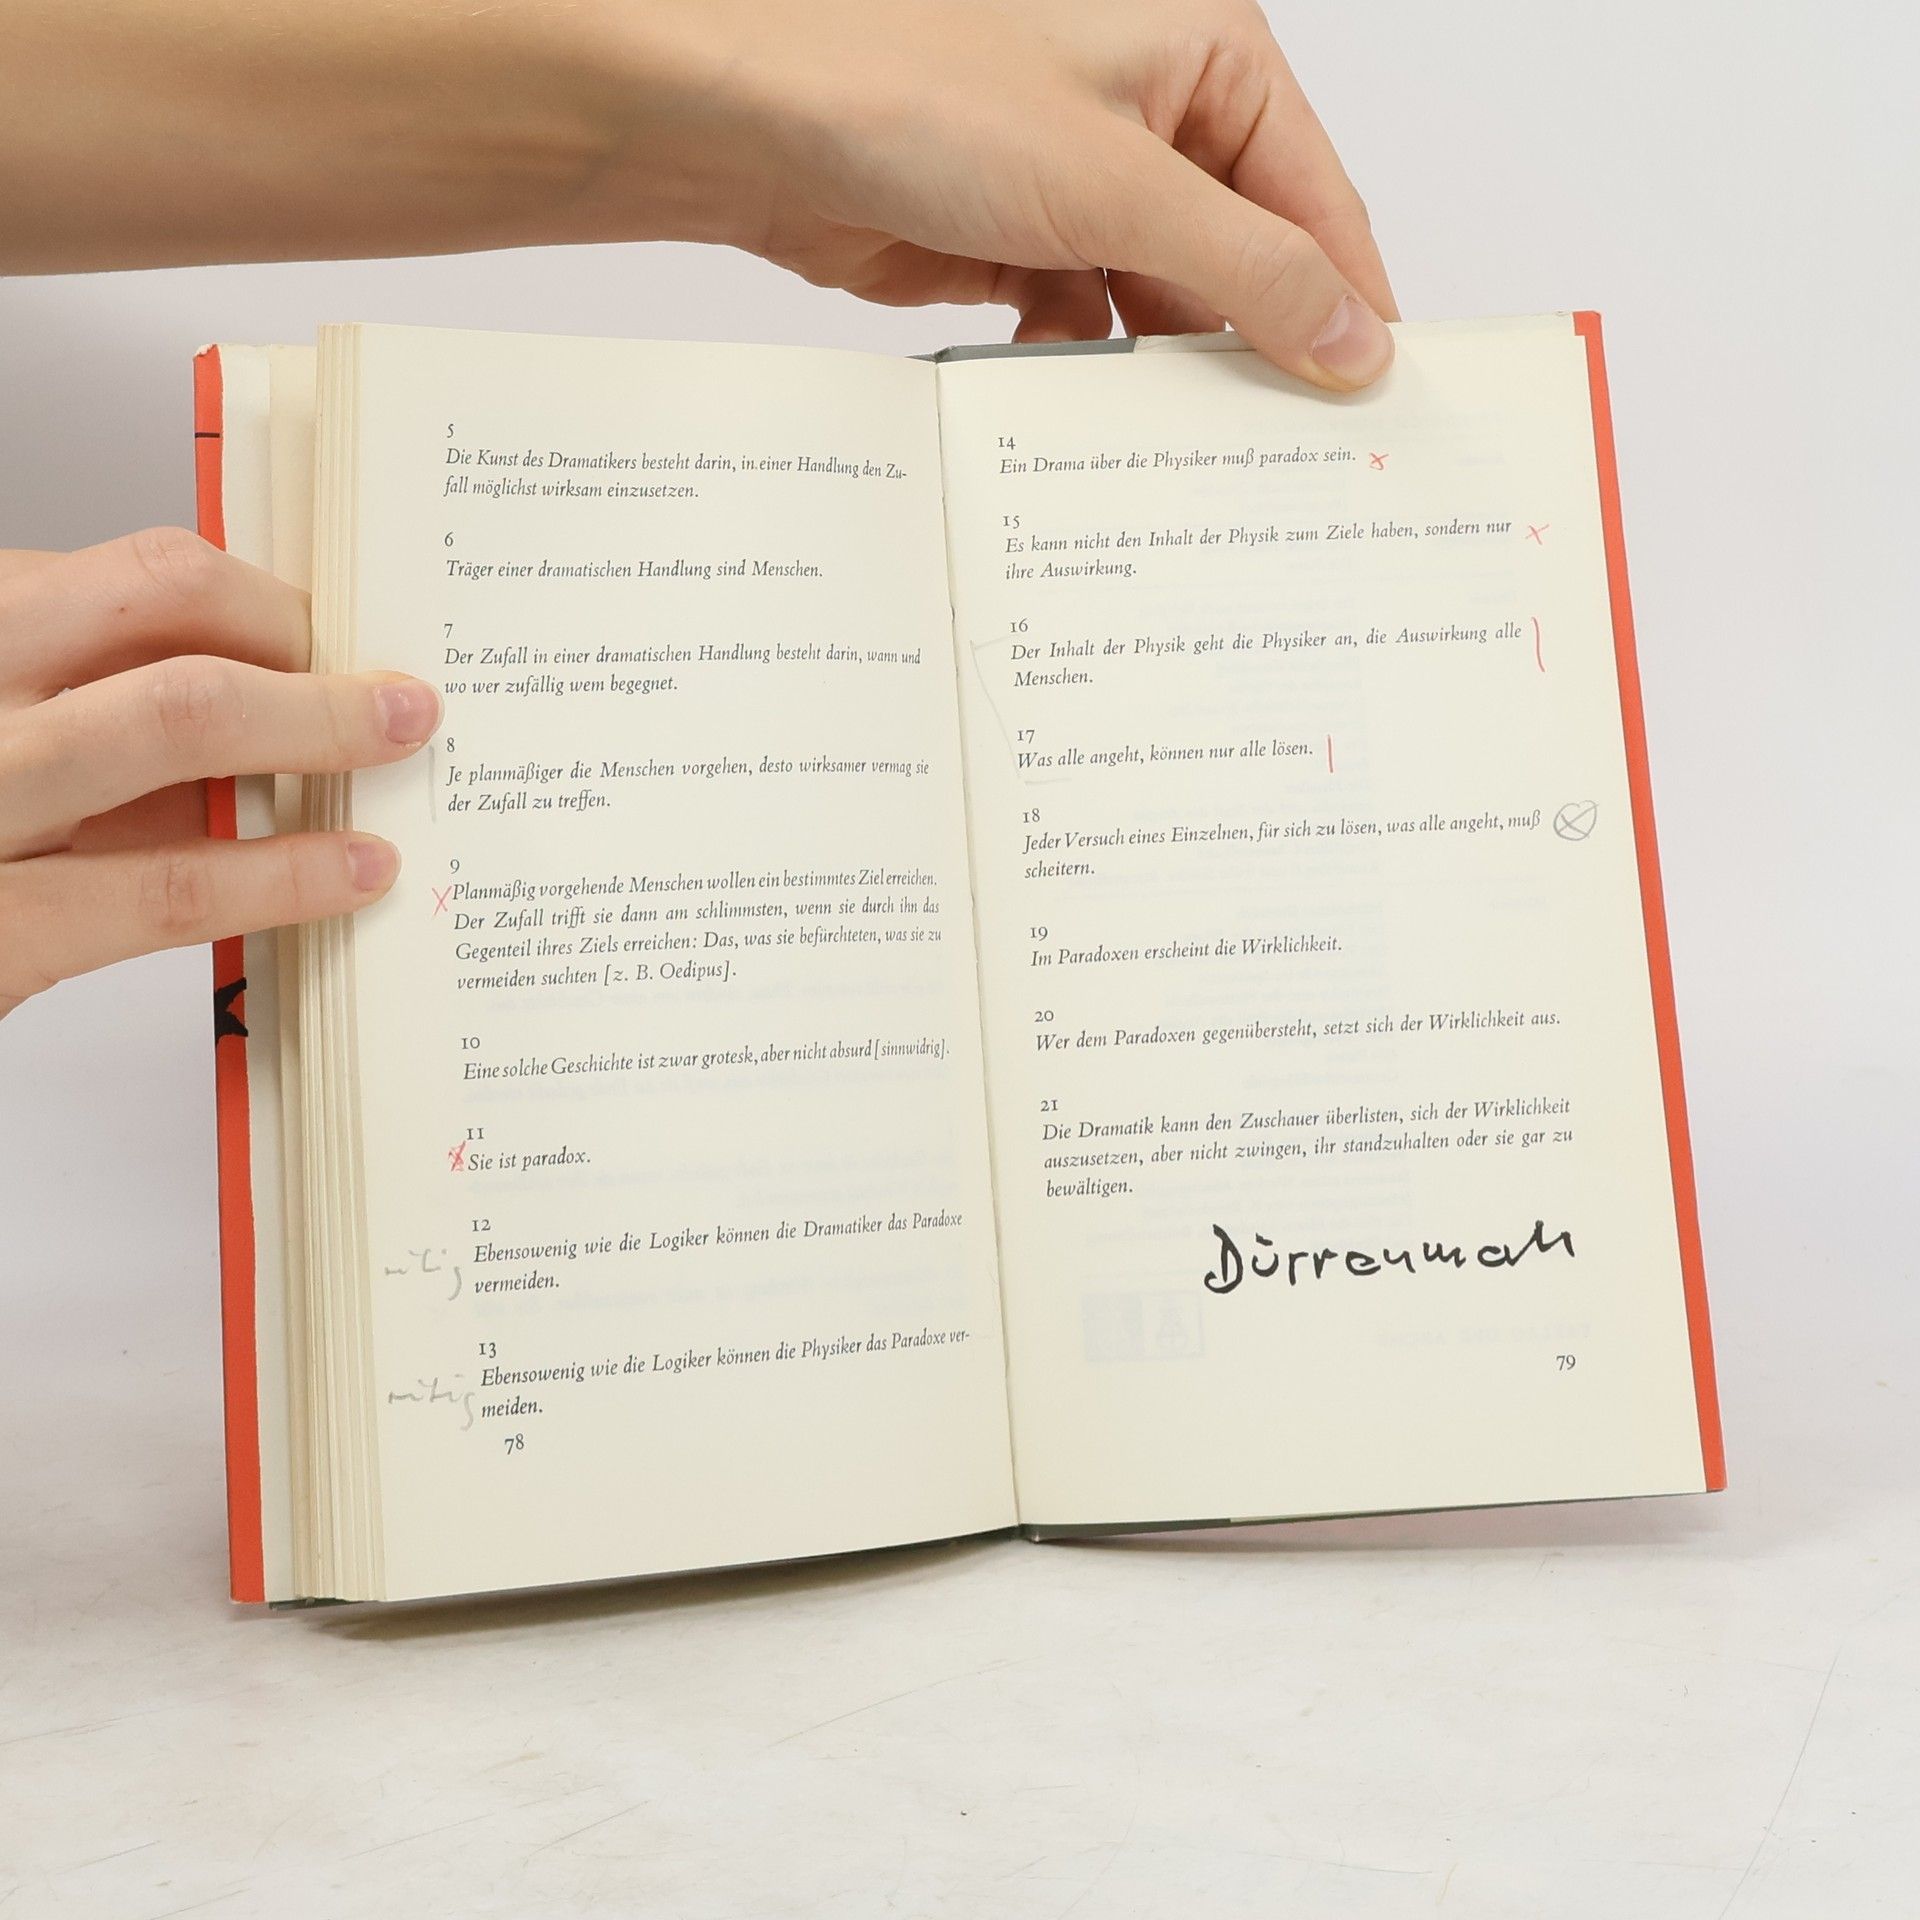 5
Die Kunst des Dramatikers besteht darin, in einer Handlung den Zu-
fall möglichst wirksam einzusetzen.
6
Träger einer dramatischen Handlung sind Menschen.
7
Der Zufall in einer dramatischen Handlung besteht darin, wann und
wo wer zufällig wem begegnet.
8
Je planmäßiger die Menschen vorgehen, desto wirksamer vermag sie
der Zufall zu treffen.
9
Planmäßig vorgehende Menschen wollen ein bestimmtes Ziel erreichen.
Der Zufall trifft sie dann am schlimmsten, wenn sie durch ihn das
Gegenteil ihres Ziels erreichen: Das, was sie befürchteten, was sie zu
vermeiden suchten [z. B. Oedipus].
10
Eine solche Geschichte ist zwar grotesk, aber nicht absurd [sinnwidrig].
11
Sie ist paradox.
12
Ebensowenig wie die Logiker können die Dramatiker das Paradoxe
vermeiden.
13
Ebensowenig wie die Logiker können die Physiker das Paradoxe ver-
meiden.
78
14
Ein Drama über die Physiker muß paradox sein.
15
Es kann nicht den Inhalt der Physik zum Ziele haben, sondern nur
ihre Auswirkung.
16
Der Inhalt der Physik geht die Physiker an, die Auswirkung alle
Menschen.
17
Was alle angeht, können nur alle lösen.
18
Jeder Versuch eines Einzelnen, für sich zu lösen, was alle angeht, muß
scheitern.
19
Im Paradoxen erscheint die Wirklichkeit.
20
Wer dem Paradoxen gegenübersteht, setzt sich der Wirklichkeit aus.
21
Die Dramatik kann den Zuschauer überlisten, sich der Wirklichkeit
auszusetzen, aber nicht zwingen, ihr standzuhalten oder sie gar zu
bewältigen.
Dürrenmatt
79